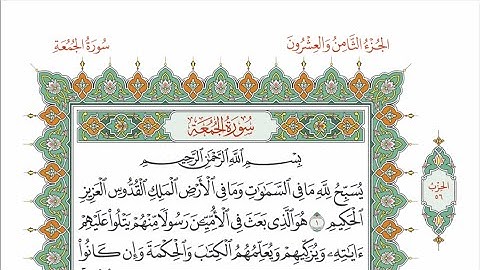 الجُزْءُ الثَّامِنُ وَالعِشْرُونَ
سُورَةُ الجُمُعَةِ
سُورَةُ الجُمُعَةِ
بِسْمِ ٱللَّهِ ٱلرَّحْمَٰنِ ٱلرَّحِيمِ
يُسَبِّحُ لِلَّهِ مَا فِي ٱلسَّمَٰوَٰتِ وَمَا فِي ٱلْأَرْضِ ٱلْمَلِكِ ٱلْقُدُّوسِ ٱلْعَزِيزِ
ٱلْحَكِيمِ ١ هُوَ ٱلَّذِي بَعَثَ فِي ٱلْأُمِّيِّـۧنَ رَسُولًا مِّنْهُمْ يَتْلُوا۟ عَلَيْهِمْ
ءَايَٰتِهِۦ وَيُزَكِّيهِمْ وَيُعَلِّمُهُمُ ٱلْكِتَٰبَ وَٱلْحِكْمَةَ وَإِن كَانُوا۟
الحِزْبُ
٥٦